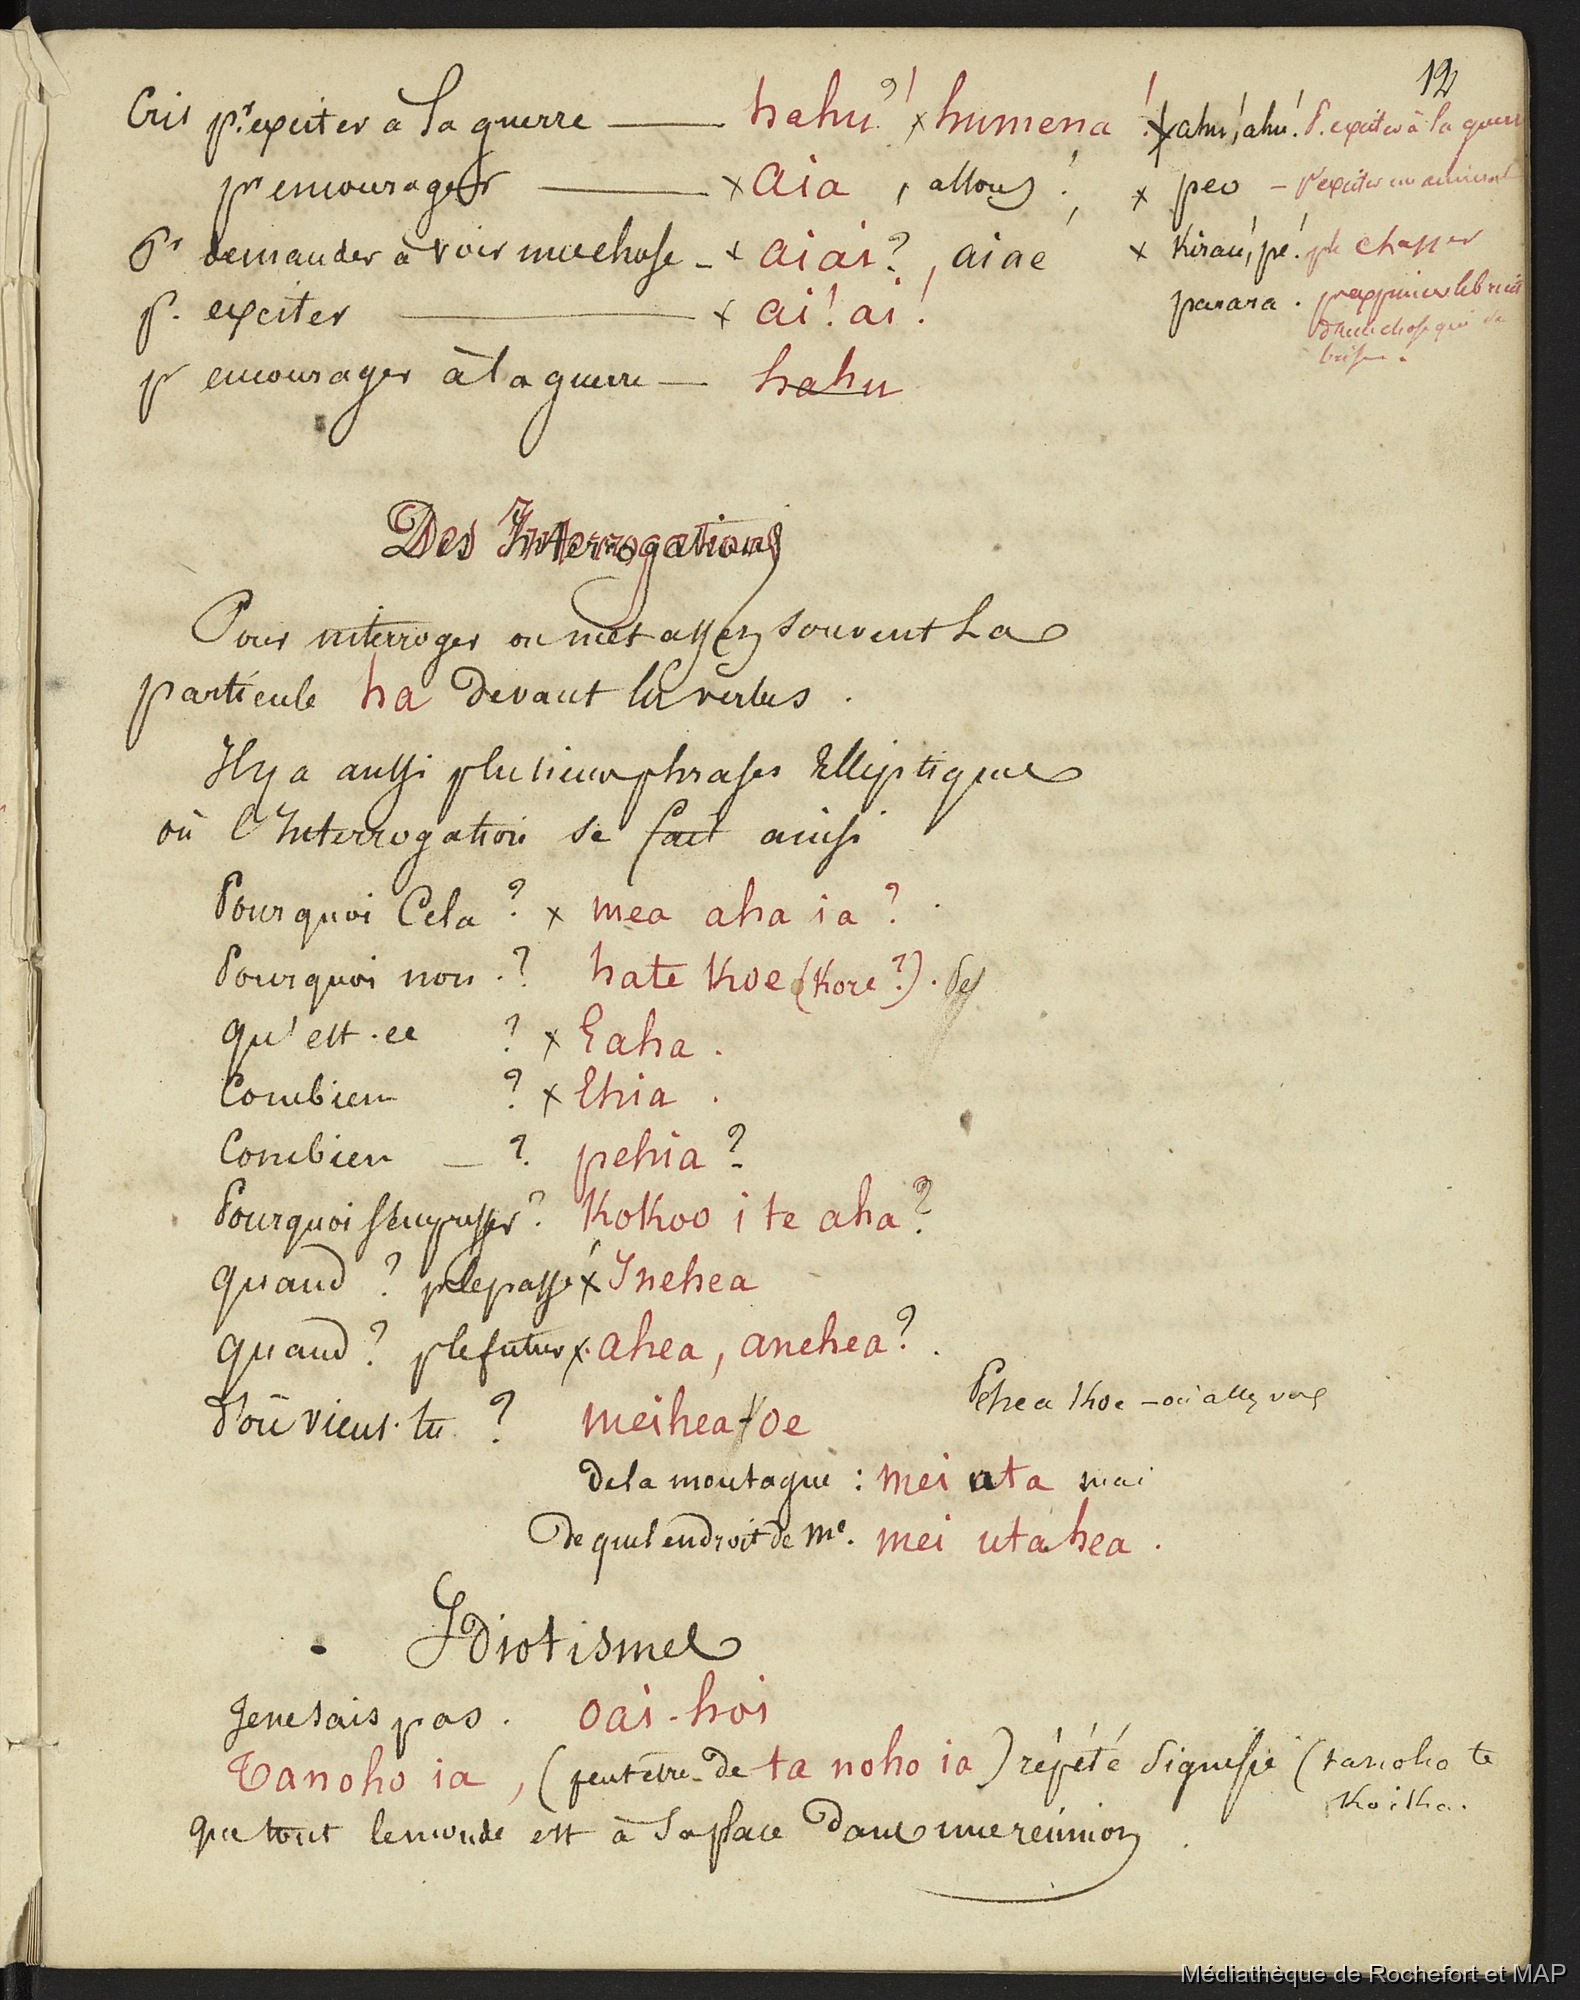 12
Cris pr. exciter à la guerre —— hahu ?! x humena ! x ahu !, ahu ! P. exciter à la guerre
pr encourager —— x aia , allons ! , x peo - pr exciter un animal
Pr demander à voir une chose - x aiai ? , aiaé x Kirau, pé ! pr chasser
p. exciter —— x ai ! ai ! panana . pr exprimer le bruit
d'une chose qui se
brise .
pr encourager à la guerre — hahu
Des Interrogations
Pour interroger on met assez souvent La
particule ha devant les verbes .
Il y a aussi plusieurs phrases Elliptiques
où l'Interrogation se fait ainsi
Pourquoi Cela ? x mea aha ia ? .
Pourquoi non . ? hate Koe (Kore ?) .
qu'est-ce ? x Eaha .
Combien ? x Ehia .
Combien — ? pehia ?
Pourquoi s'empresser ? KoKoo i te aha ?
quand ? pr le passé x Inehea
quand ? p le futur x . ahea , anehea ? .
d'où viens-tu ? meihea Koe
Pehea Koe - où allez vous
de la montagne : mei uta mai
De quel endroit de me . mei uta hea .
Idiotismes
Je ne sais pas . oai - hoi
Tanoho ia , (peut être de ta noho ia ) répété signifie (tanoho te
Koika .
que tout le monde est à sa place dans une réunion .
Médiathèque de Rochefort et MAP